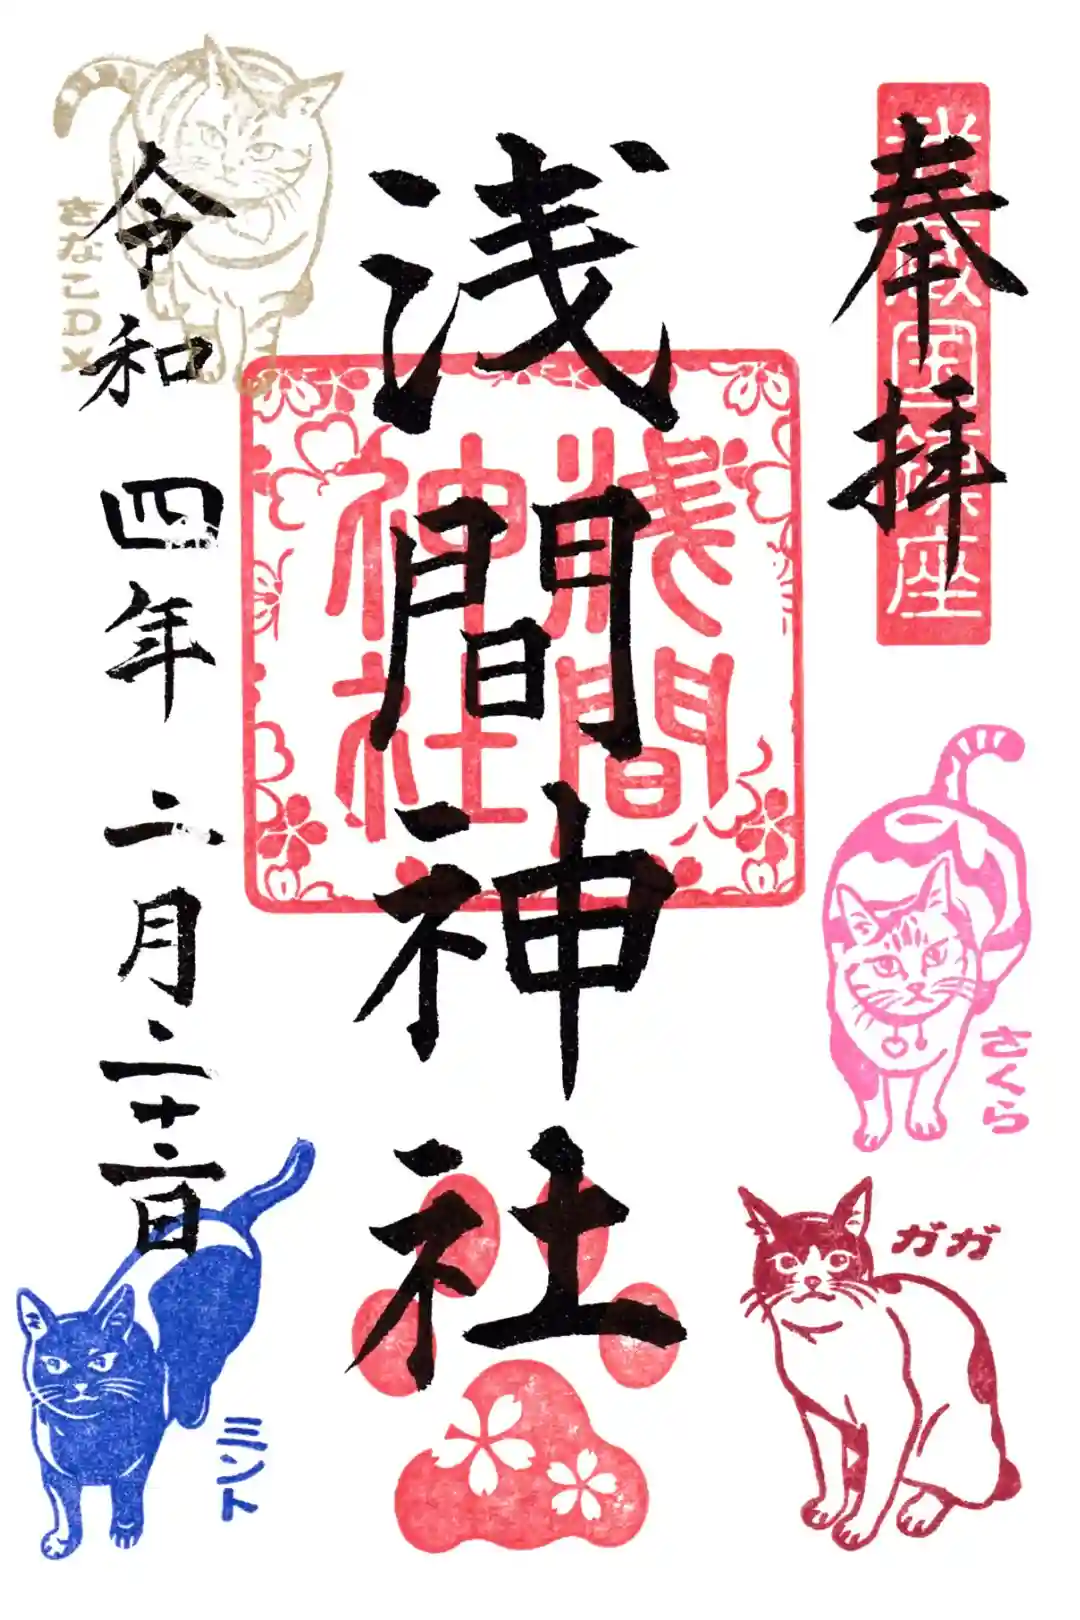 奉拝
武蔵国鎮座
浅間神社
浅間
神社
令和四年二月二十二日
きなこDX
さくら
ガガ
ミント